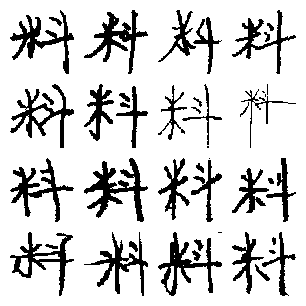 料料料料
料料料料
料料料料
料料料料